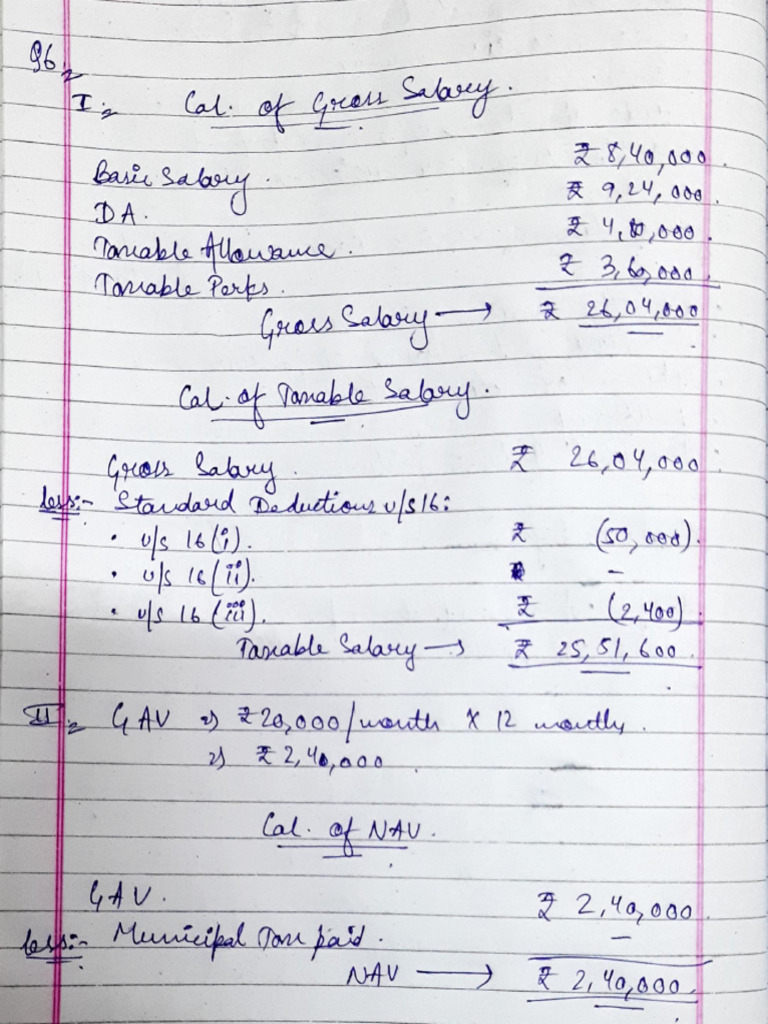 96.
I. Cal. of Gross Salary.
Basic Salary. ₹ 8,40,000
DA. ₹ 9,24,000
Taxable Allowance. ₹ 4,80,000
Taxable Perks. ₹ 3,60,000
Gross Salary → ₹ 26,04,000
Cal. of Taxable Salary.
Gross Salary. ₹ 26,04,000
Less:- Standard Deductions u/s 16:
• u/s 16(i). ₹ (50,000).
• u/s 16(ii). -
• u/s 16(iii). ₹ (2,400).
Taxable Salary → ₹ 25,51,600.
II. GAV => ₹20,000/month X 12 months.
=> ₹ 2,40,000
Cal. of NAV.
GAV. ₹ 2,40,000
Less:- Municipal Tax paid. -
NAV → ₹ 2,40,000